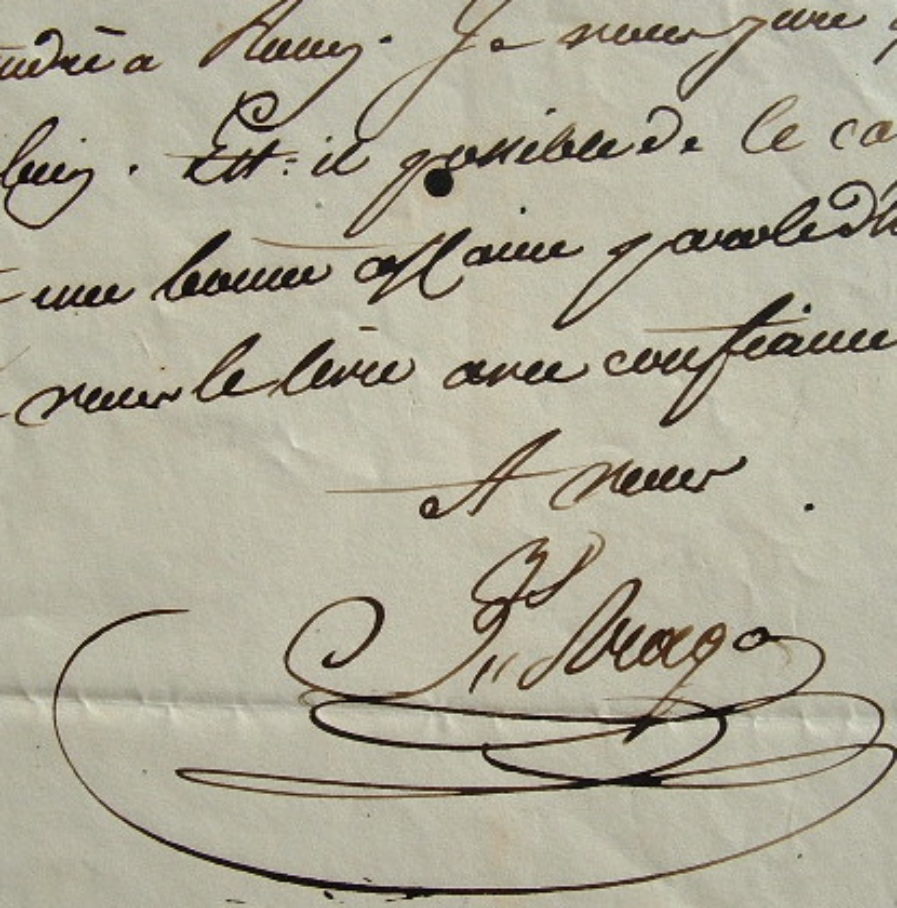 à Je vous jure
Est-il possible de le
une bonne affaire parole
vous le livre avec confiance
A vous
Js Arago